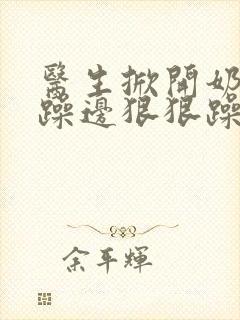 醫生掀開奶
躁邊狠狠躁
余平輝